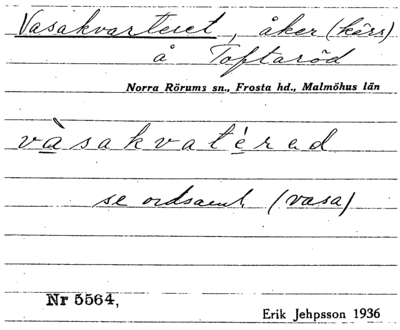 Vasakvarteret, åker (kärr)
å Toftaröd
Norra Rörums sn., Frosta hd., Malmöhus län
và sakvatérad
se ordsaml. (vasa)
Nr 5564,
Erik Jehpsson 1936